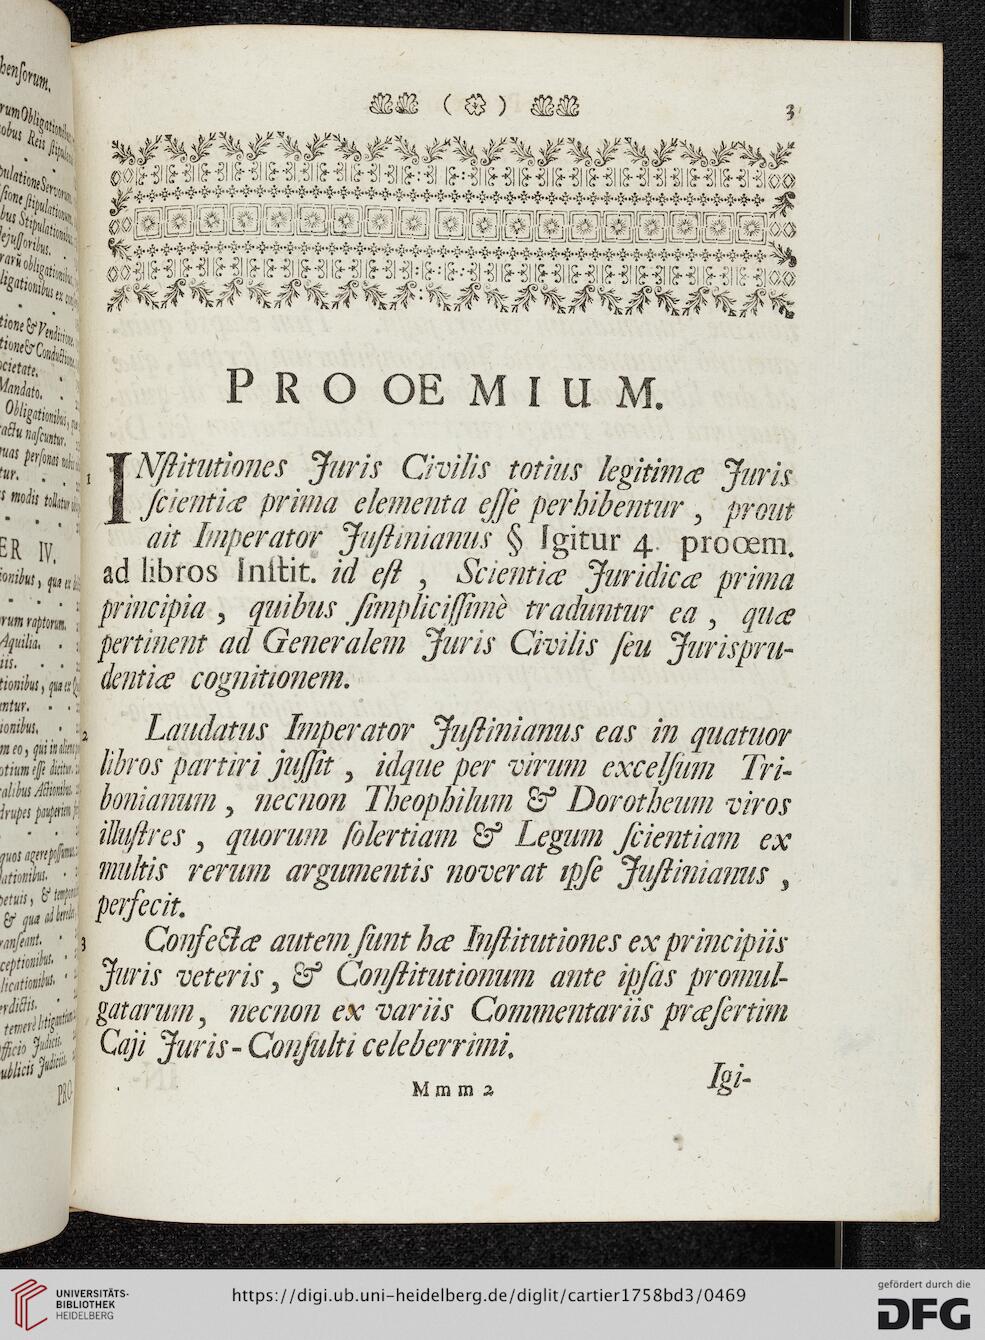 ( ) 3
PROOEMIUM.
1 INſtitutiones Juris Civilis totius legitimæ Juris
ſcientiæ prima elementa eſſe perhibentur, prout
ait Imperator Juſtinianus § Igitur 4. prooem.
ad libros Inſtit. id eſt, Scientiæ Juridicæ prima
principia, quibus ſimpliciſſimè traduntur ea, quæ
pertinent ad Generalem Juris Civilis ſeu Jurispru-
dentiæ cognitionem.
2 Laudatus Imperator Juſtinianus eas in quatuor
libros partiri juſſit, idque per virum excelſum Tri-
bonianum, necnon Theophilum & Dorotheum viros
illuſtres, quorum ſolertiam & Legum ſcientiam ex
multis rerum argumentis noverat ipſe Juſtinianus,
perfecit.
3 Confectæ autem ſunt hæ Inſtitutiones ex principiis
Juris veteris, & Conſtitutionum ante ipſas promul-
gatarum, necnon ex variis Commentariis præſertim
Caji Juris-Conſulti celeberrimi.
Mmm 2 Igi-
UNIVERSITÄTS-
BIBLIOTHEK
HEIDELBERG
https://digi.ub.uni-heidelberg.de/diglit/cartier1758bd3/0469
gefördert durch die
DFG